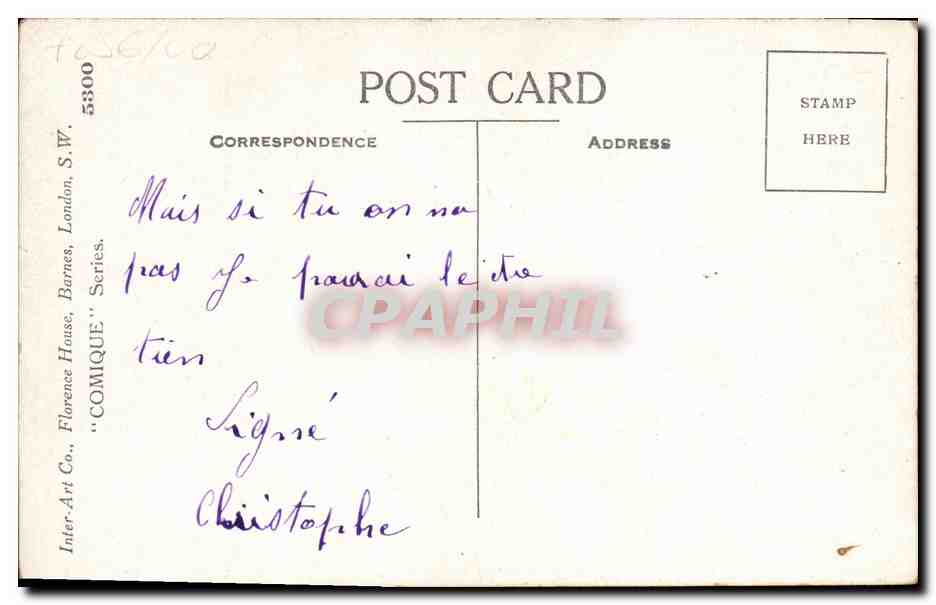 POST CARD
CORRESPONDENCE
ADDRESS
STAMP
HERE
Mais si tu on na
pas Je pourai le être
tien
Signé
Christophe
Inter-Art Co., Florence House, Barnes, London, S.W.
"COMIQUE" Series.
5300
CPAPHIL